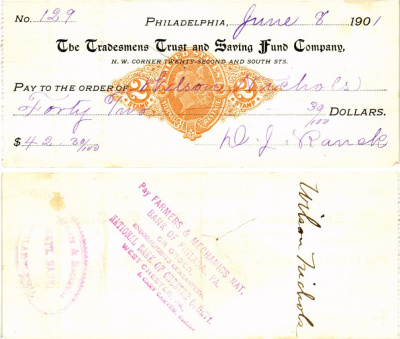 No. 129
PHILADELPHIA, June 8 1901
The Tradesmens Trust and Saving Fund Company,
N. W. CORNER TWENTY-SECOND AND SOUTH STS.
PAY TO THE ORDER OF Wilson Nichols
Forty Two 30/100 DOLLARS.
2 2
STAMP
$42.30/100 D. J. Ranck
Pay FARMERS & MECHANICS NAT.
BANK OF PHILADA. PA.
OR ORDER
NATIONAL BANK OF CHESTER COUNTY,
WEST CHESTER, PA.
Wilson Nichols